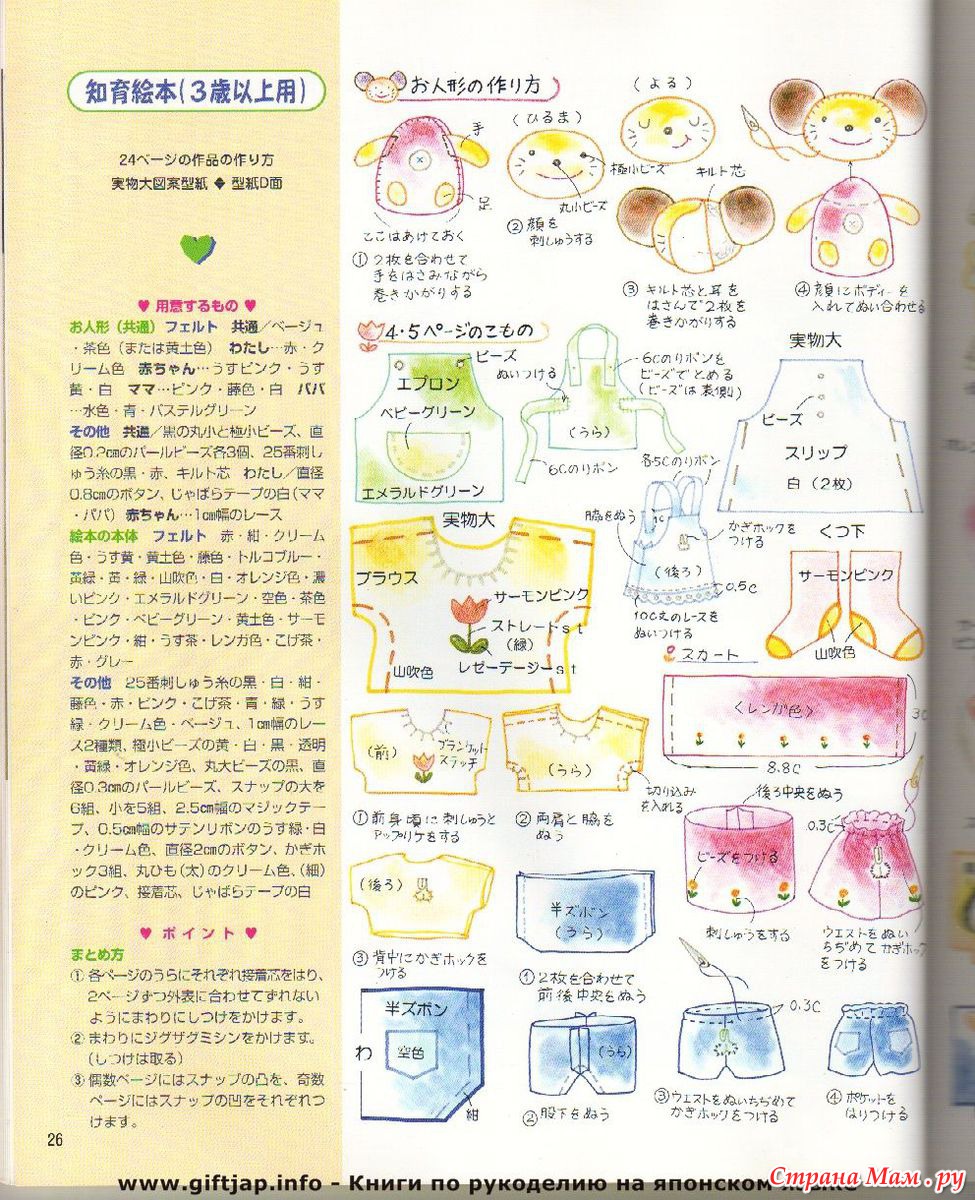 知育絵本(3歳以上用)
24ページの作品の作り方
実物大図案型紙 ◆ 型紙D面
♥ 用意するもの ♥
お人形(共通) フェルト 共通/ベージュ
・茶色(または黄土色) わたし…赤・ク
リーム色 赤ちゃん…うすピンク・うす
黄・白 ママ…ピンク・藤色・白 パパ
…水色・青・パステルグリーン
その他 共通/黒の丸小と極小ビーズ、直
径0.2cmのパールビーズ各3個、25番刺し
ゅう糸の黒・赤、キルト芯 わたし/直径
0.8cmのボタン、じゃばらテープの白(ママ
・パパ) 赤ちゃん…1cm幅のレース
絵本の本体 フェルト 赤・紺・クリーム
色・うす黄・黄土色・藤色・トルコブルー・
黄緑・黄・緑・山吹色・白・オレンジ色・濃
いピンク・エメラルドグリーン・空色・茶色
・ピンク・ベビーグリーン・黄土色・サーモ
ンピンク・紺・うす茶・レンガ色・こげ茶・
赤・グレー
その他 25番刺しゅう糸の黒・白・紺・
藤色・赤・ピンク・こげ茶・青・緑・うす
緑・クリーム色・ベージュ、1cm幅のレー
ス2種類、極小ビーズの黄・白・黒・透明
・黄緑・オレンジ色、丸大ビーズの黒、直
径0.3cmのパールビーズ、スナップの大を
6組、小を5組、2.5cm幅のマジックテー
プ、0.5cm幅のサテンリボンのうす緑・白
・クリーム色、直径2cmのボタン、かぎホ
ック3組、丸ひも(太)のクリーム色、(細)
のピンク、接着芯、じゃばらテープの白
♥ ポイント ♥
まとめ方
① 各ページのうらにそれぞれ接着芯をはり、
2ページずつ外表に合わせてずれない
ようにまわりにしつけをかけます。
② まわりにジグザグミシンをかけます。
(しつけは取る)
③ 偶数ページにはスナップの凸を、奇数
ページにはスナップの凹をそれぞれつ
けます。
26
お人形の作り方
手
足
ここはあけておく
① 2枚を合わせて
手をはさみながら
巻きかがりする
(ひるま)
丸小ビーズ
② 顔を
刺しゅうする
(よる)
極小ビーズ
キルト芯
③ キルト芯と耳を
はさんで2枚を
巻きかがりする
④ 顔にボディーを
入れてぬい合わせる
4・5ページのこもの
ビーズ
エプロン
ベビーグリーン
エメラルドグリーン
ぬいつける
6Cのリボンを
ビーズでとめる
(ビーズは表側)
(うら)
6Cのリボン
実物大
ビーズ
スリップ
白(2枚)
各5Cのリボン
脇をぬう
1C
かぎホックを
つける
(後ろ)
0.5C
10C丈のレースを
ぬいつける
くつ下
サーモンピンク
山吹色
実物大
ブラウス
サーモンピンク
ストレートst
(緑)
レゼーデージーst
山吹色
(前)
ブランケット
ステッチ
① 前身頃に刺しゅうと
アップリケをする
(うら)
切り込み
を入れる
② 両肩と脇を
ぬう
(後ろ)
③ 背中にかぎホックを
つける
スカート
〈レンガ色〉
8.8C
後ろ中央をぬう
ビーズをつける
刺しゅうをする
0.3C
ウエストをぬい
ちぢめてかぎホック
をつける
半ズボン
わ
空色
紺
半ズボン
(うら)
① 2枚を合わせて
前後中央をぬう
(うら)
② 股下をぬう
0.3C
③ ウエストをぬいちぢめて
かぎホックをつける
④ ポケットを
はりつける
www.giftjap.info - Книги по рукоделию на японском языке
Страна Мам.ру